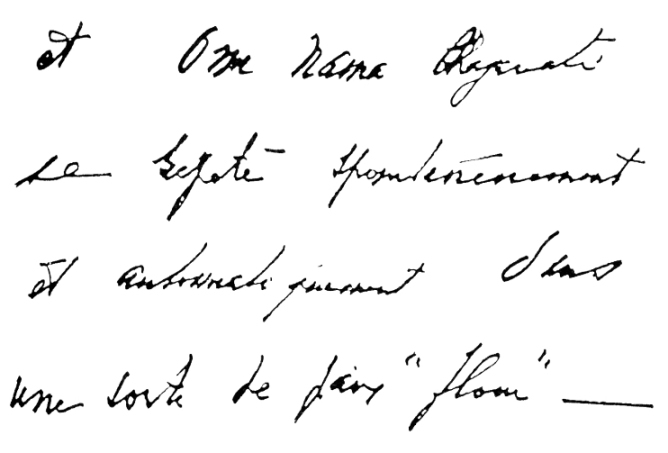 et Om Namo Bhagavateh
se répète spontanément
et automatiquement dans
une sorte de paix "floue" —